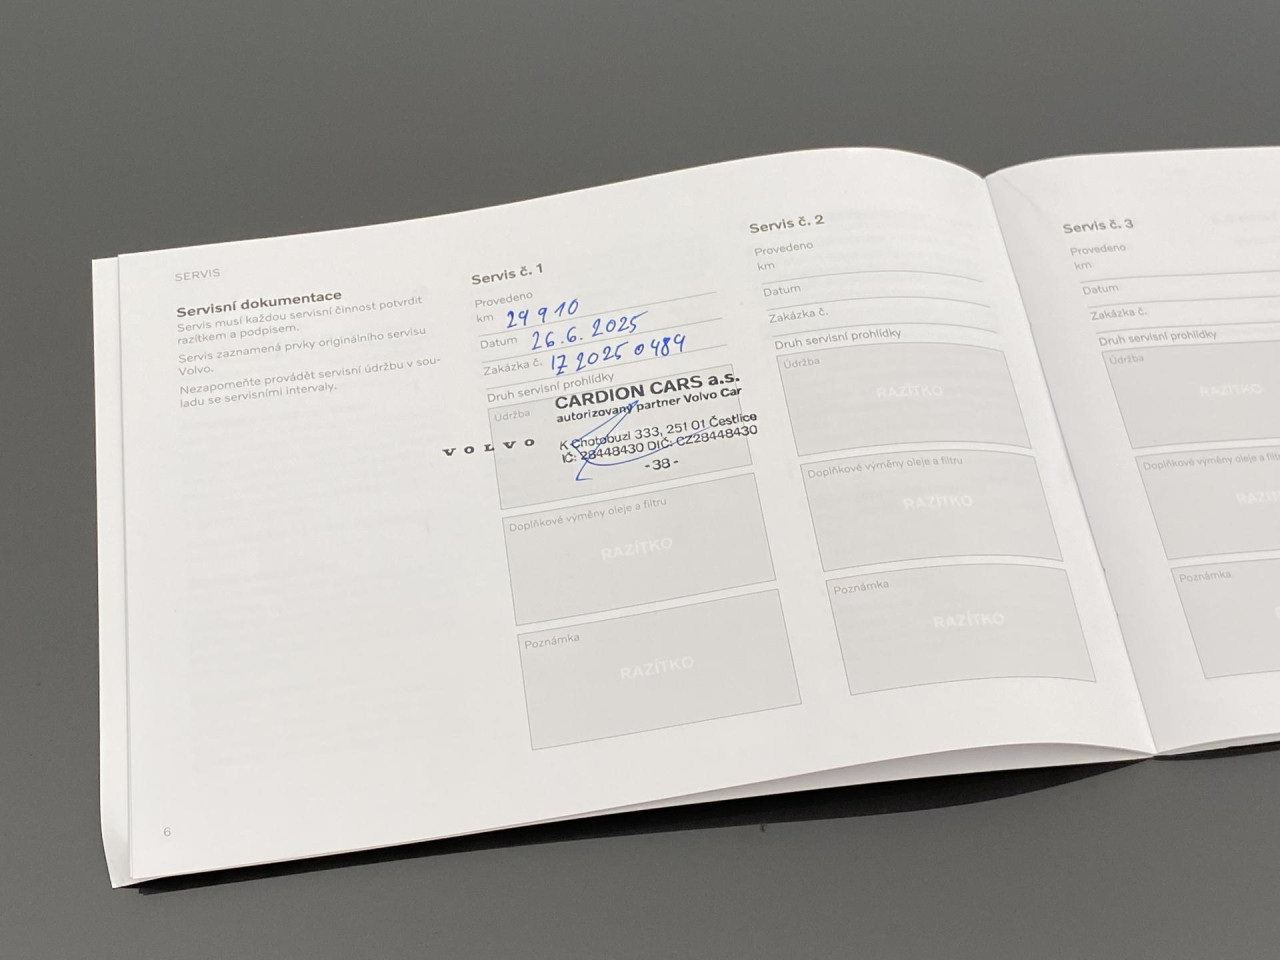 SERVIS
Servisní dokumentace
Servis musí každou servisní činnost potvrdit
razítkem a podpisem.
Servis zaznamená prvky originálního servisu
Volvo.
Nezapomeňte provádět servisní údržbu v sou-
ladu se servisními intervaly.
6
Servis č. 1
Provedeno
km 29 910
Datum 26.6. 2025
Zakázka č. 1Z 2025 0489
Druh servisní prohlídky
Údržba
CARDION CARS a.s.
autorizovaný partner Volvo Car
VOLVO
K Chotobuzi 333, 251 01 Čestlice
IČ: 28448430 DIČ: CZ28448430
-38-
Doplňkové výměny oleje a filtru
RAZÍTKO
Poznámka
RAZÍTKO
Servis č. 2
Provedeno
km
Datum
Zakázka č.
Druh servisní prohlídky
Údržba
RAZÍTKO
Doplňkové výměny oleje a filtru
RAZÍTKO
Poznámka
RAZÍTKO
Servis č. 3
Provedeno
km
Datum
Zakázka č.
Druh servisní prohlídky
Údržba
RAZÍTKO
Doplňkové výměny oleje a filt
RAZÍT
Poznámka